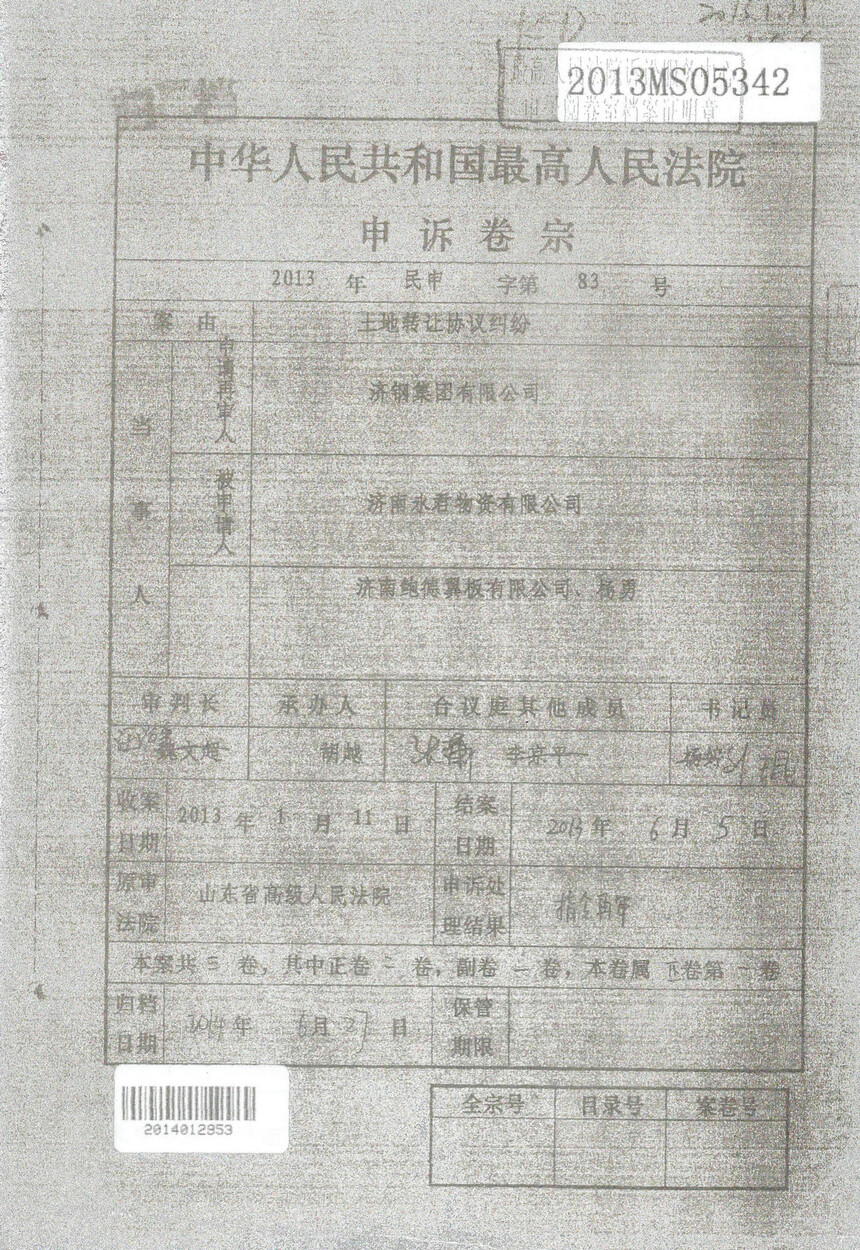 2013MS05342
中华人民共和国最高人民法院
申诉卷宗
2013 年 民申 字第 83 号
案由 土地转让协议纠纷
当事人
申请再审人 济钢集团有限公司
被申请人 济南永君物资有限公司
济南鲍德翼板有限公司、杨勇
审判长 承办人 合议庭其他成员 书记员
胡越 李京平
收案日期 2013 年 1 月 11 日 结案日期 2013 年 6 月 5 日
原审法院 山东省高级人民法院 申诉处理结果 指令再审
本案共 三 卷，其中正卷 二 卷，副卷 一 卷，本卷属 正卷第 一 卷
归档日期 2014 年 6 月 27 日 保管期限
2014012953
全宗号 目录号 案卷号